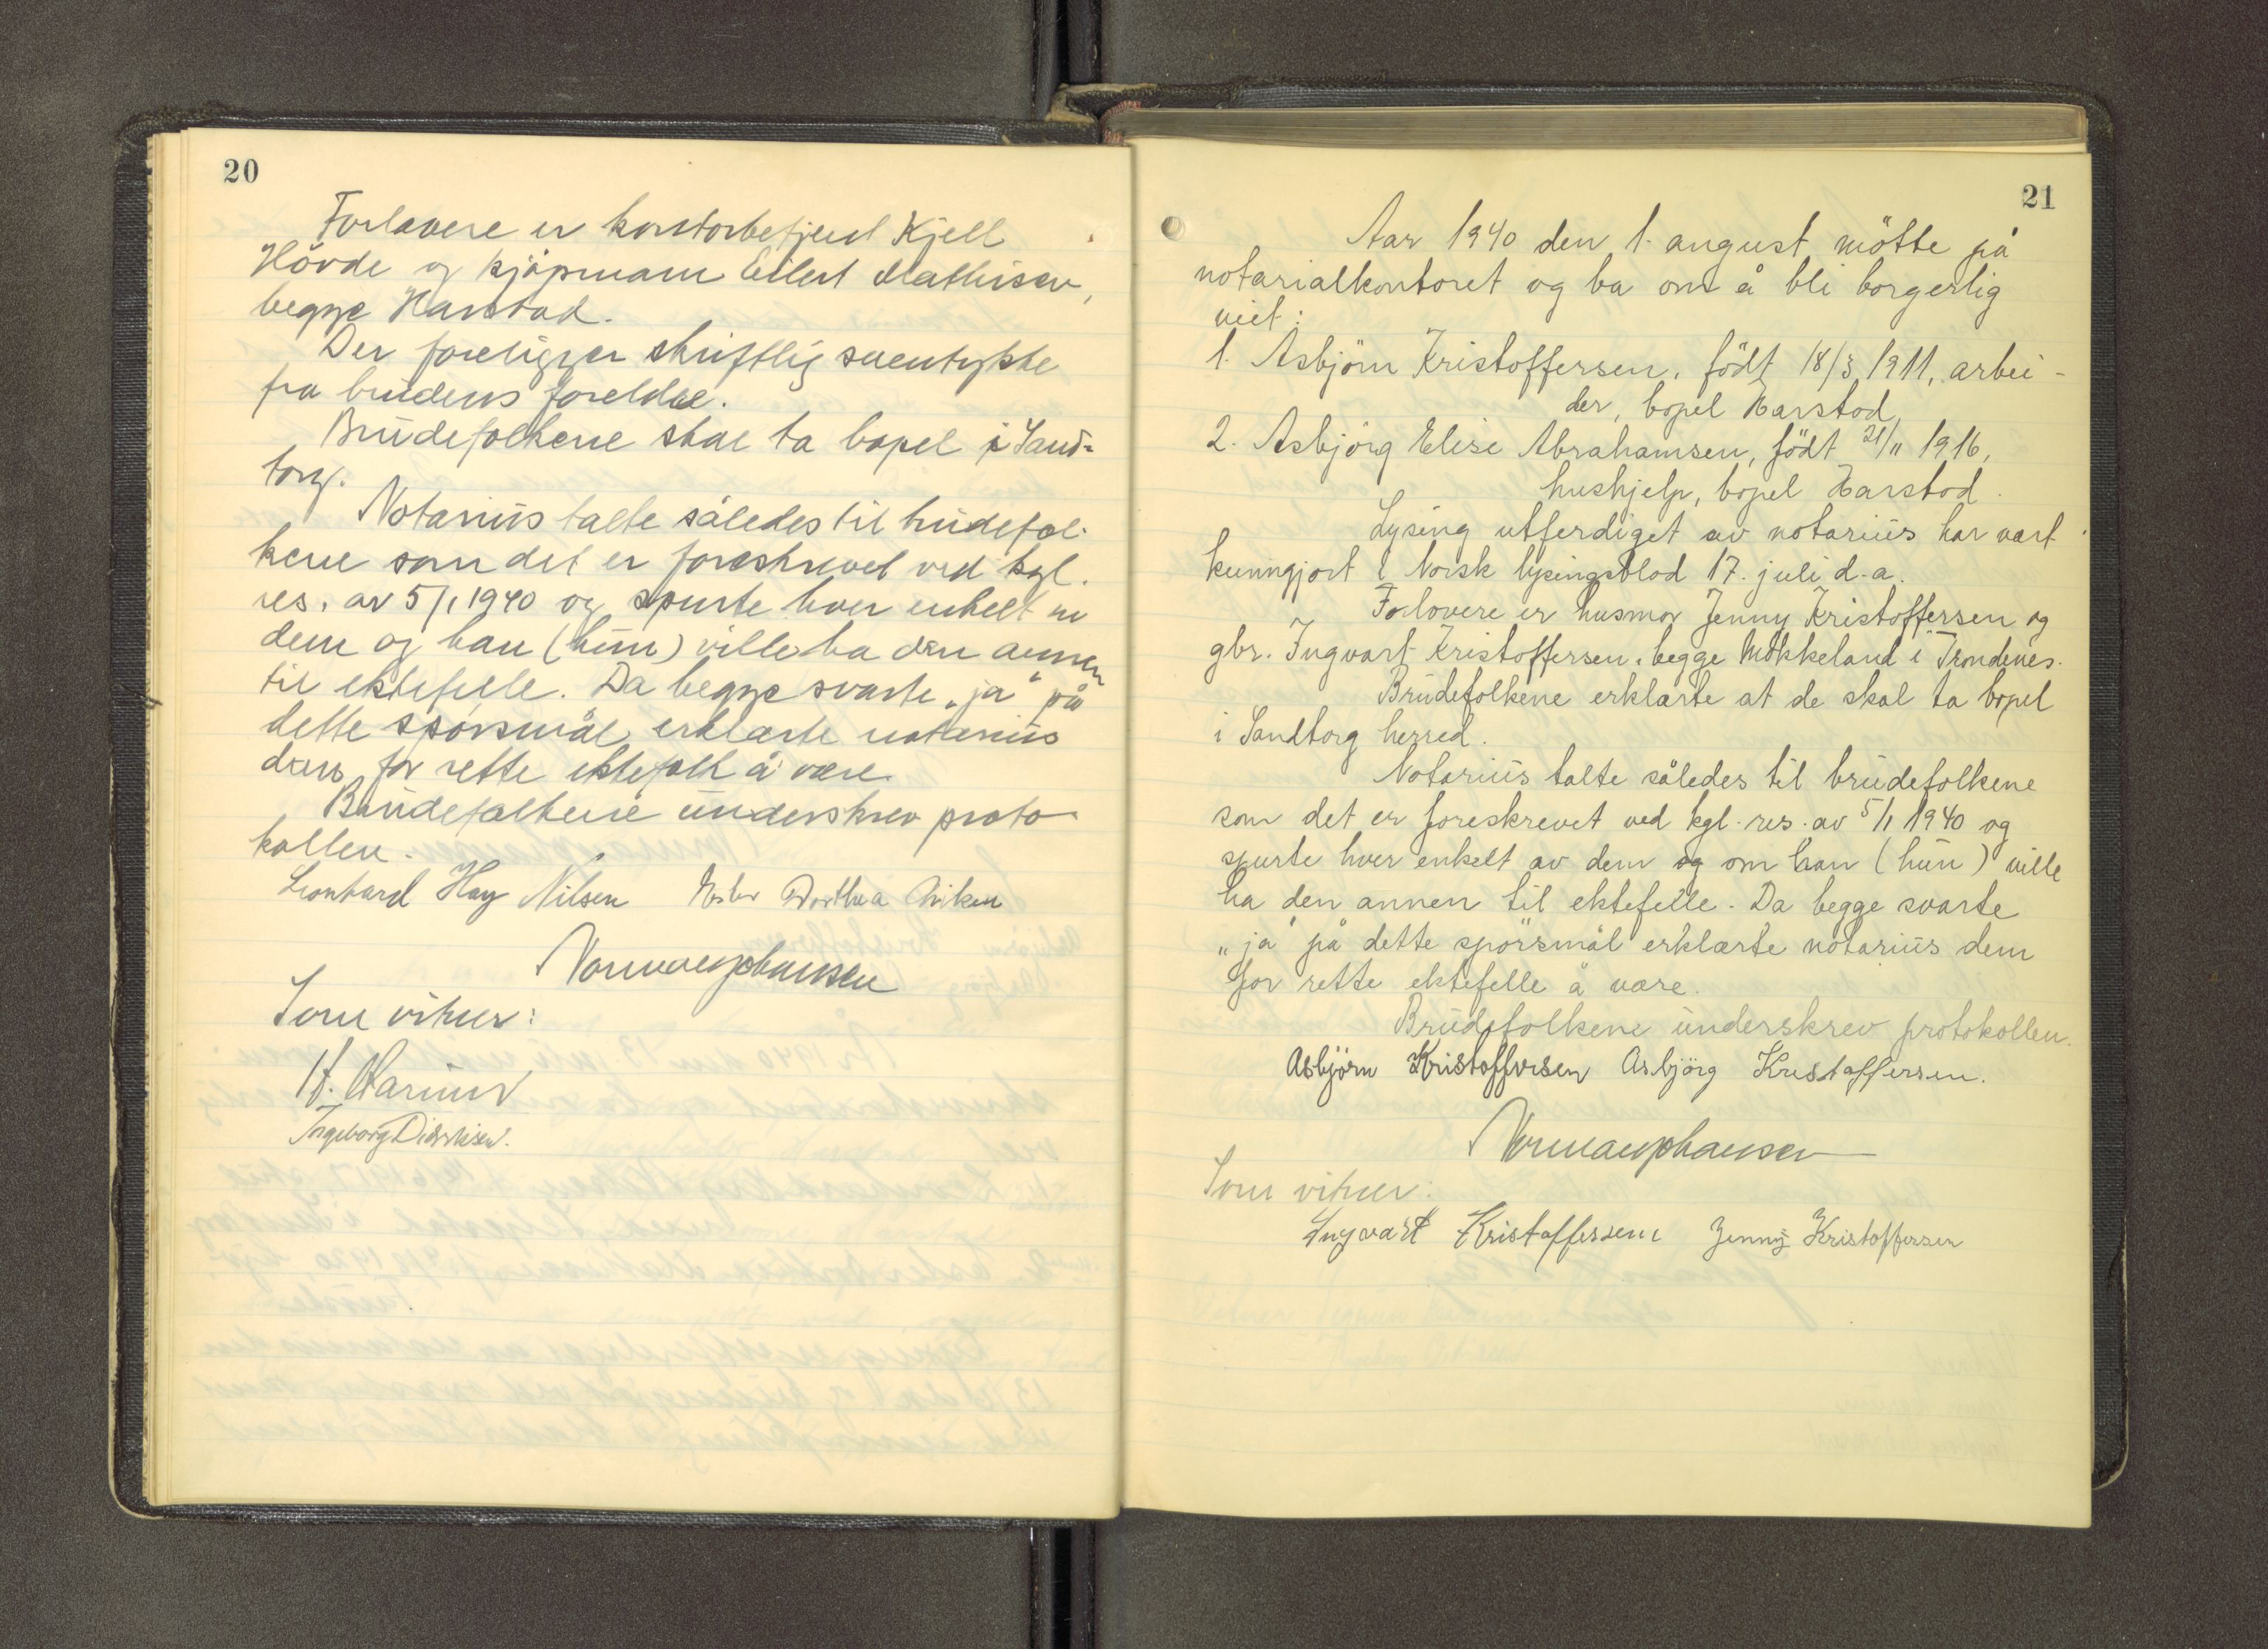 20
Forlovere er kontorbetjent Kjell
Hövde og kjöpmann Eilert Mathisen,
begge Harstad.
Der foreligger skriftlig samtykke
fra brudens foreldre.
Brudefolkene skal ta bopel i Sand-
torg.
Notarius talte således til brudefol-
kene som det er foreskrevet ved kgl.
res. av 5/1 1940 og spurte hver enkelt av
dem og han (hun) ville ha den annen
til ektefelle. Da begge svarte „ja" på
dette spörsmål erklærte notarius
dem for rette ektefolk å være.
Brudefolkene underskrev proto-
kollen.
Leonhard Hay Nilsen Ester Dorthea
Normann Johansen
Som vitner:
H. Marius
Ingeborg Didriksen.
21
Aar 1940 den 1. august mötte på
notarialkontoret og ba om å bli borgerlig
viet:
1. Asbjörn Kristoffersen, födt 18/3 1911, arbei-
der, bopel Harstad
2. Asbjörg Elise Abrahamsen, födt 21/11 1916,
hushjelp, bopel Harstad.
Lysing utferdiget av notarius har vært
kunngjort i Norsk lysingsblad 17. juli d.a.
Forlovere er husmor Jenny Kristoffersen og
gbr. Ingvart Kristoffersen, begge Mökkeland i Trondenes.
Brudefolkene erklærte at de skal ta bopel
i Sandtorg herred.
Notarius talte således til brudefolkene
som det er foreskrevet ved kgl. res. av 5/1 1940 og
spurte hver enkelt av dem og om han (hun) ville
ha den annen til ektefelle. Da begge svarte
„ja" på dette spörsmål erklærte notarius dem
for rette ektefelle å være.
Brudefolkene underskrev protokollen.
Asbjörn Kristoffersen Asbjörg Kristoffersen.
Normann Johansen
Som vitner:
Ingvart Kristoffersen Jenny Kristoffersen